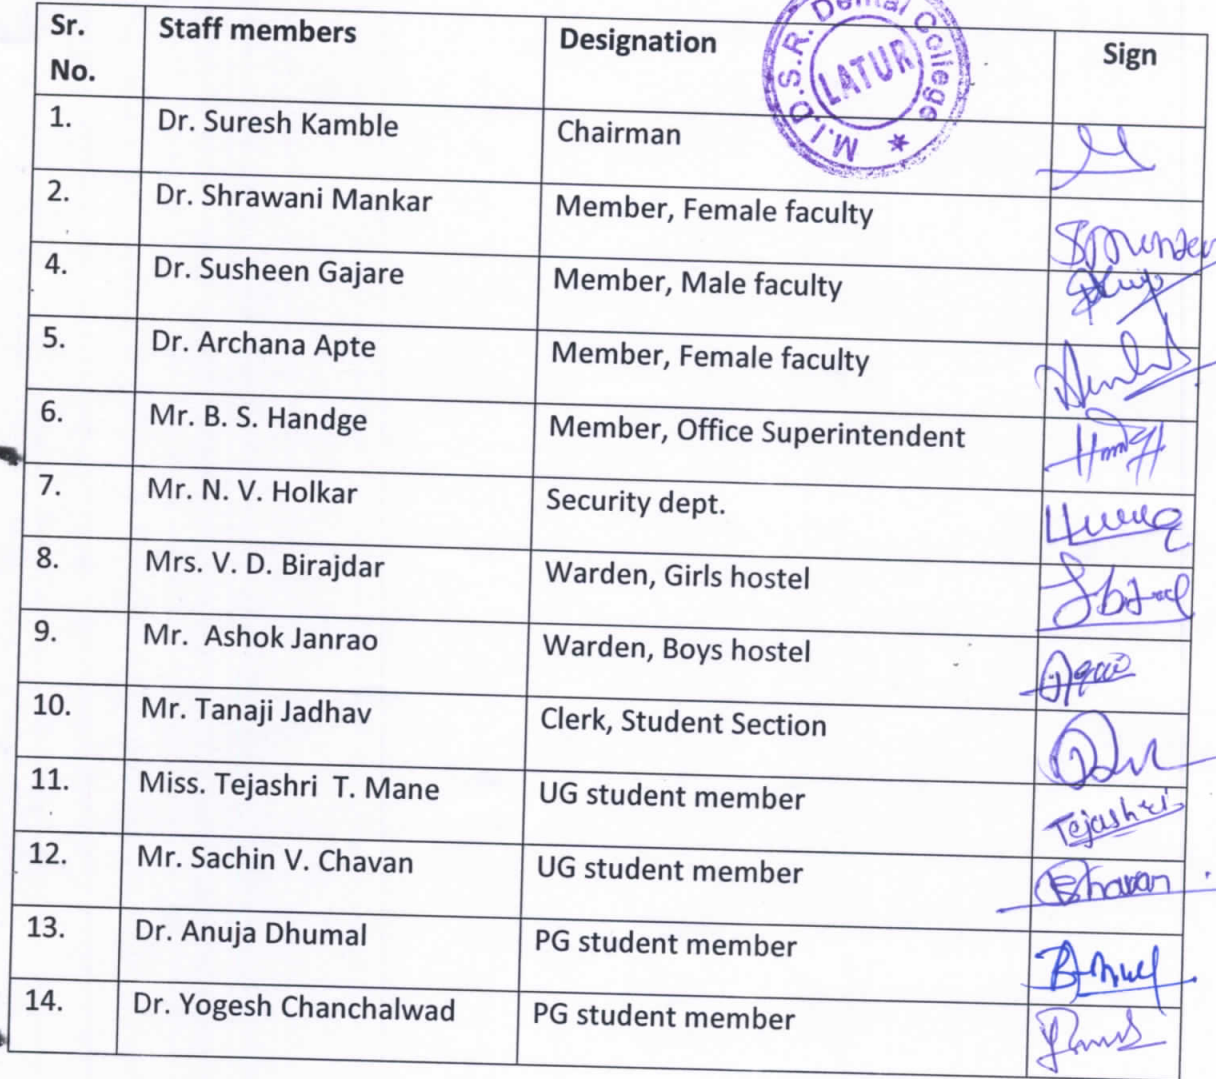 Sr. No. Staff members Designation Sign
M.I.D.S.R. Dental College
LATUR
*
1. Dr. Suresh Kamble Chairman
2. Dr. Shrawani Mankar Member, Female faculty
4. Dr. Susheen Gajare Member, Male faculty
5. Dr. Archana Apte Member, Female faculty
6. Mr. B. S. Handge Member, Office Superintendent
7. Mr. N. V. Holkar Security dept.
8. Mrs. V. D. Birajdar Warden, Girls hostel
9. Mr. Ashok Janrao Warden, Boys hostel
10. Mr. Tanaji Jadhav Clerk, Student Section
11. Miss. Tejashri T. Mane UG student member Tejashri
12. Mr. Sachin V. Chavan UG student member
13. Dr. Anuja Dhumal PG student member
14. Dr. Yogesh Chanchalwad PG student member